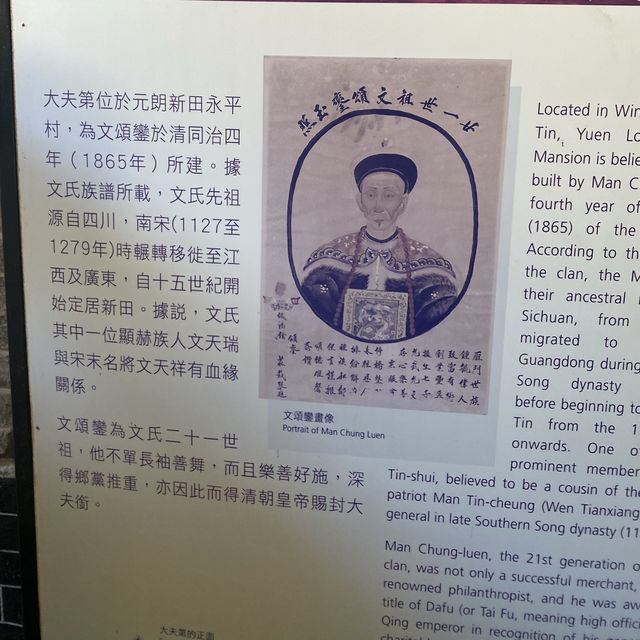 大夫第位於元朗新田永平
村，為文頌鑾於清同治四
年（1865年）所建。據
文氏族譜所載，文氏先祖
源自四川，南宋(1127至
1279年)時輾轉移徙至江
西及廣東，自十五世紀開
始定居新田。據說，文氏
其中一位顯赫族人文天瑞
與宋末名將文天祥有血緣
關係。
文頌鑾為文氏二十一世
祖，他不單長袖善舞，而且樂善好施，深
得鄉黨推重，亦因此而得清朝皇帝賜封大
夫銜。
廿一世祖文頌鑾玉照
文頌鑾畫像
Portrait of Man Chung Luen
Located in Win
Tin, Yuen Lo
Mansion is belie
built by Man C
fourth year of
(1865) of the
According to th
the clan, the M
their ancestral
Sichuan, from
migrated to
Guangdong during
Song dynasty
before beginning to
Tin from the 1
onwards. One o
prominent member
Tin-shui, believed to be a cousin of the
patriot Man Tin-cheung (Wen Tianxiang
general in late Southern Song dynasty (11
Man Chung-luen, the 21st generation o
clan, was not only a successful merchant,
renowned philanthropist, and he was aw
title of Dafu (or Tai Fu, meaning high offic
Qing emperor in recognition of his
大夫第的正面